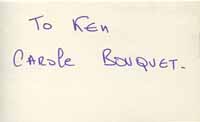 To Ken
CAROle BOUQUET.